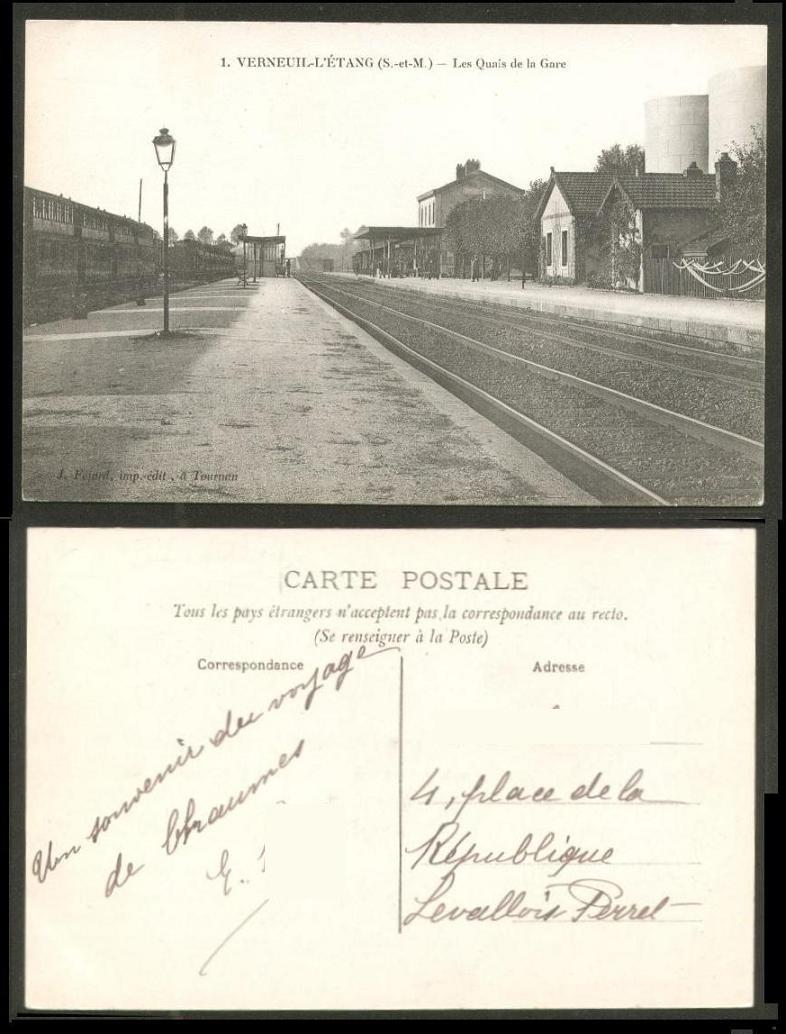 1. VERNEUIL-L'ÉTANG (S.-et-M.) — Les Quais de la Gare
J. Fejard, imp.-édit., à Tournan
CARTE POSTALE
Tous les pays étrangers n'acceptent pas la correspondance au recto.
(Se renseigner à la Poste)
Correspondance
Un souvenir du voyage
de Chaumes
E.
Adresse
4, place de la
République
Levallois Perret